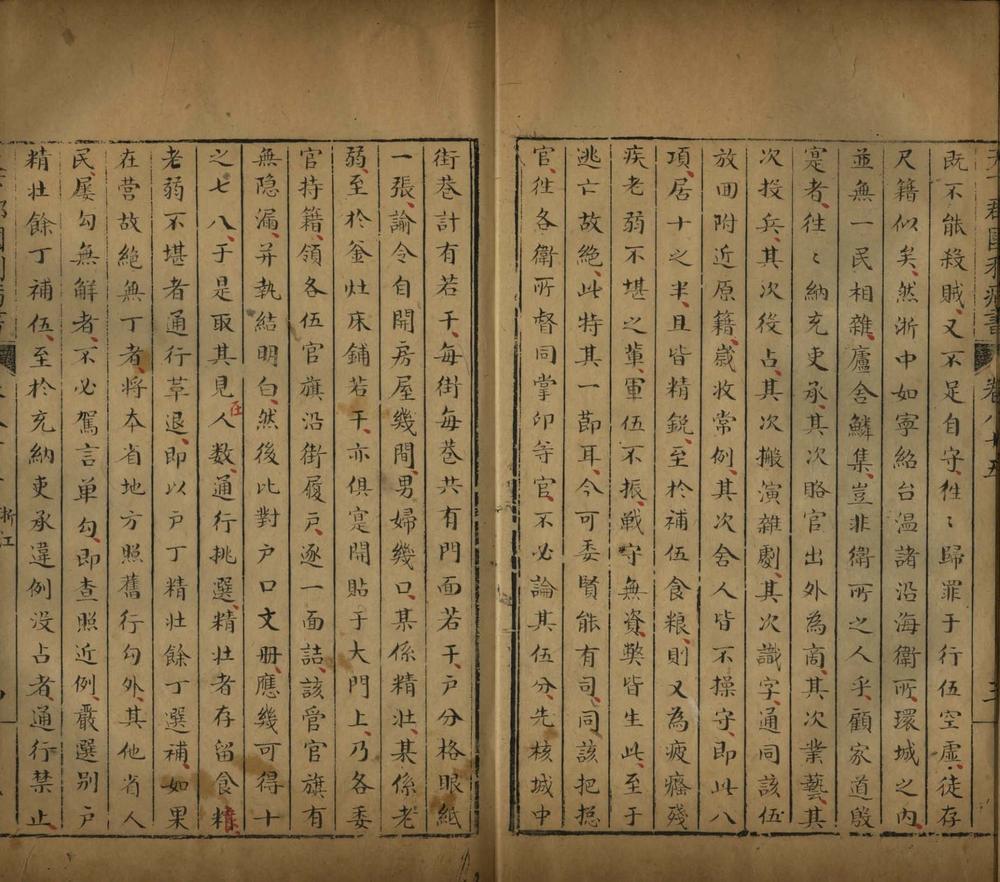 天下郡國利病書 卷八十五
既不能殺賊又不足自守徃〻歸罪于行伍空虛徒存
尺籍似矣然浙中如寧紹台温諸沿海衛所環城之内
並無一民相雜廬舍鱗集豈非衛所之人乎顧家道殷
寔者徃〻納充吏承其次賂官出外為商其次業藝其
次投兵其次役占其次搬演雜劇其次識字通同該伍
放回附近原籍歳收常例其次舍人皆不操守即此八
項居十之半且皆精銳至於補伍食粮則又為疲癃殘
疾老弱不堪之軰軍伍不振戰守無資獘皆生此至于
逃亡故絶此特其一節耳今可委賢能有司同該把揔
官徃各衛所督同掌印等官不必論其伍分先核城中
街巷計有若干每街每巷共有門面若干户分格眼紙
一張諭令自開房屋幾間男婦幾口某係精壮某係老
弱至於釜灶床鋪若干亦俱寔開貼于大門上乃各委
官持籍領各伍官旗沿街履户逐一面詰該管官旗有
無隐漏并執結明白然後比對户口文册應幾可得十
之七八于是取其見在人数通行挑選精壮者存留食粮
老弱不堪者通行革退即以户丁精壮餘丁選補如果
在營故絶無丁者將本省地方照舊行勾外其他省人
民屡勾無觧者不必駕言单勾即查照近例嚴選别户
精壮餘丁補伍至於充納吏承違例没占者通行禁止
浙江